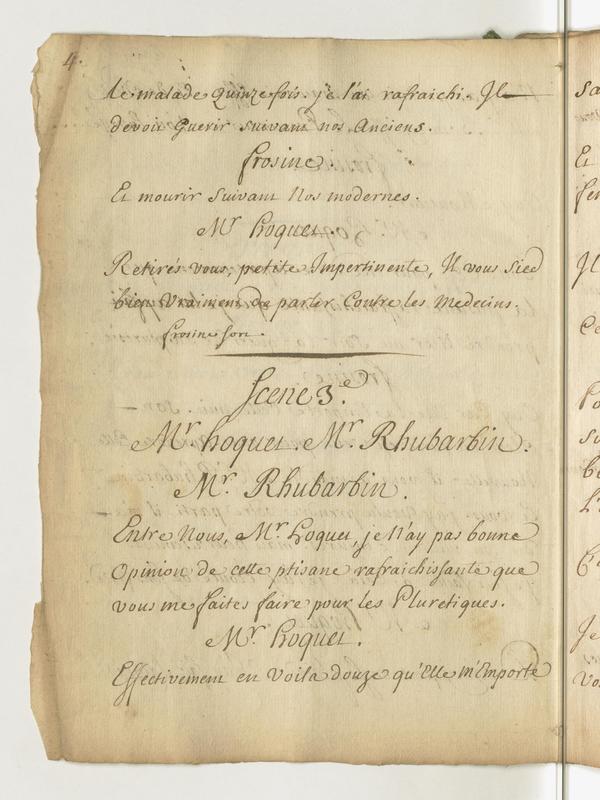 4.
le malade quinze fois. je l'ai rafraichi. Il
devoit Guerir suivant nos Anciens.
frosine.
Et mourir suivant Nos modernes.
Mr. hoquet.
Retirés vous, petite Impertinente, Il vous sied
bien vraiment de parler Contre les Medecins.
frosine sort.
Scene 3.e
Mr. hoquet. Mr. Rhubarbin.
Mr. Rhubarbin.
Entre Nous, Mr. hoquet, je N'ay pas bonne
Opinion de cette ptisane rafraichissante que
vous me faites faire pour les Pluretiques.
Mr. hoquet.
Effectivement en Voila douze qu'Elle m'Emporte